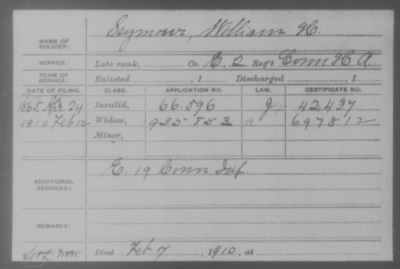 NAME OF SOLDIER: Seymour, William H.
SERVICE: Late rank, Co. E, 2 Reg't Conn H A
TERM OF SERVICE: Enlisted , 1 Discharged , 1
DATE OF FILING. CLASS. APPLICATION NO. LAW. CERTIFICATE NO.
1865 24 Invalid, 66.596 42,437
1910 Feb 12 Widow, 935753 697812
Minor,
ADDITIONAL SERVICES: E. 19 Conn Inf.
REMARKS:
Died Feb 7 , 1910, at